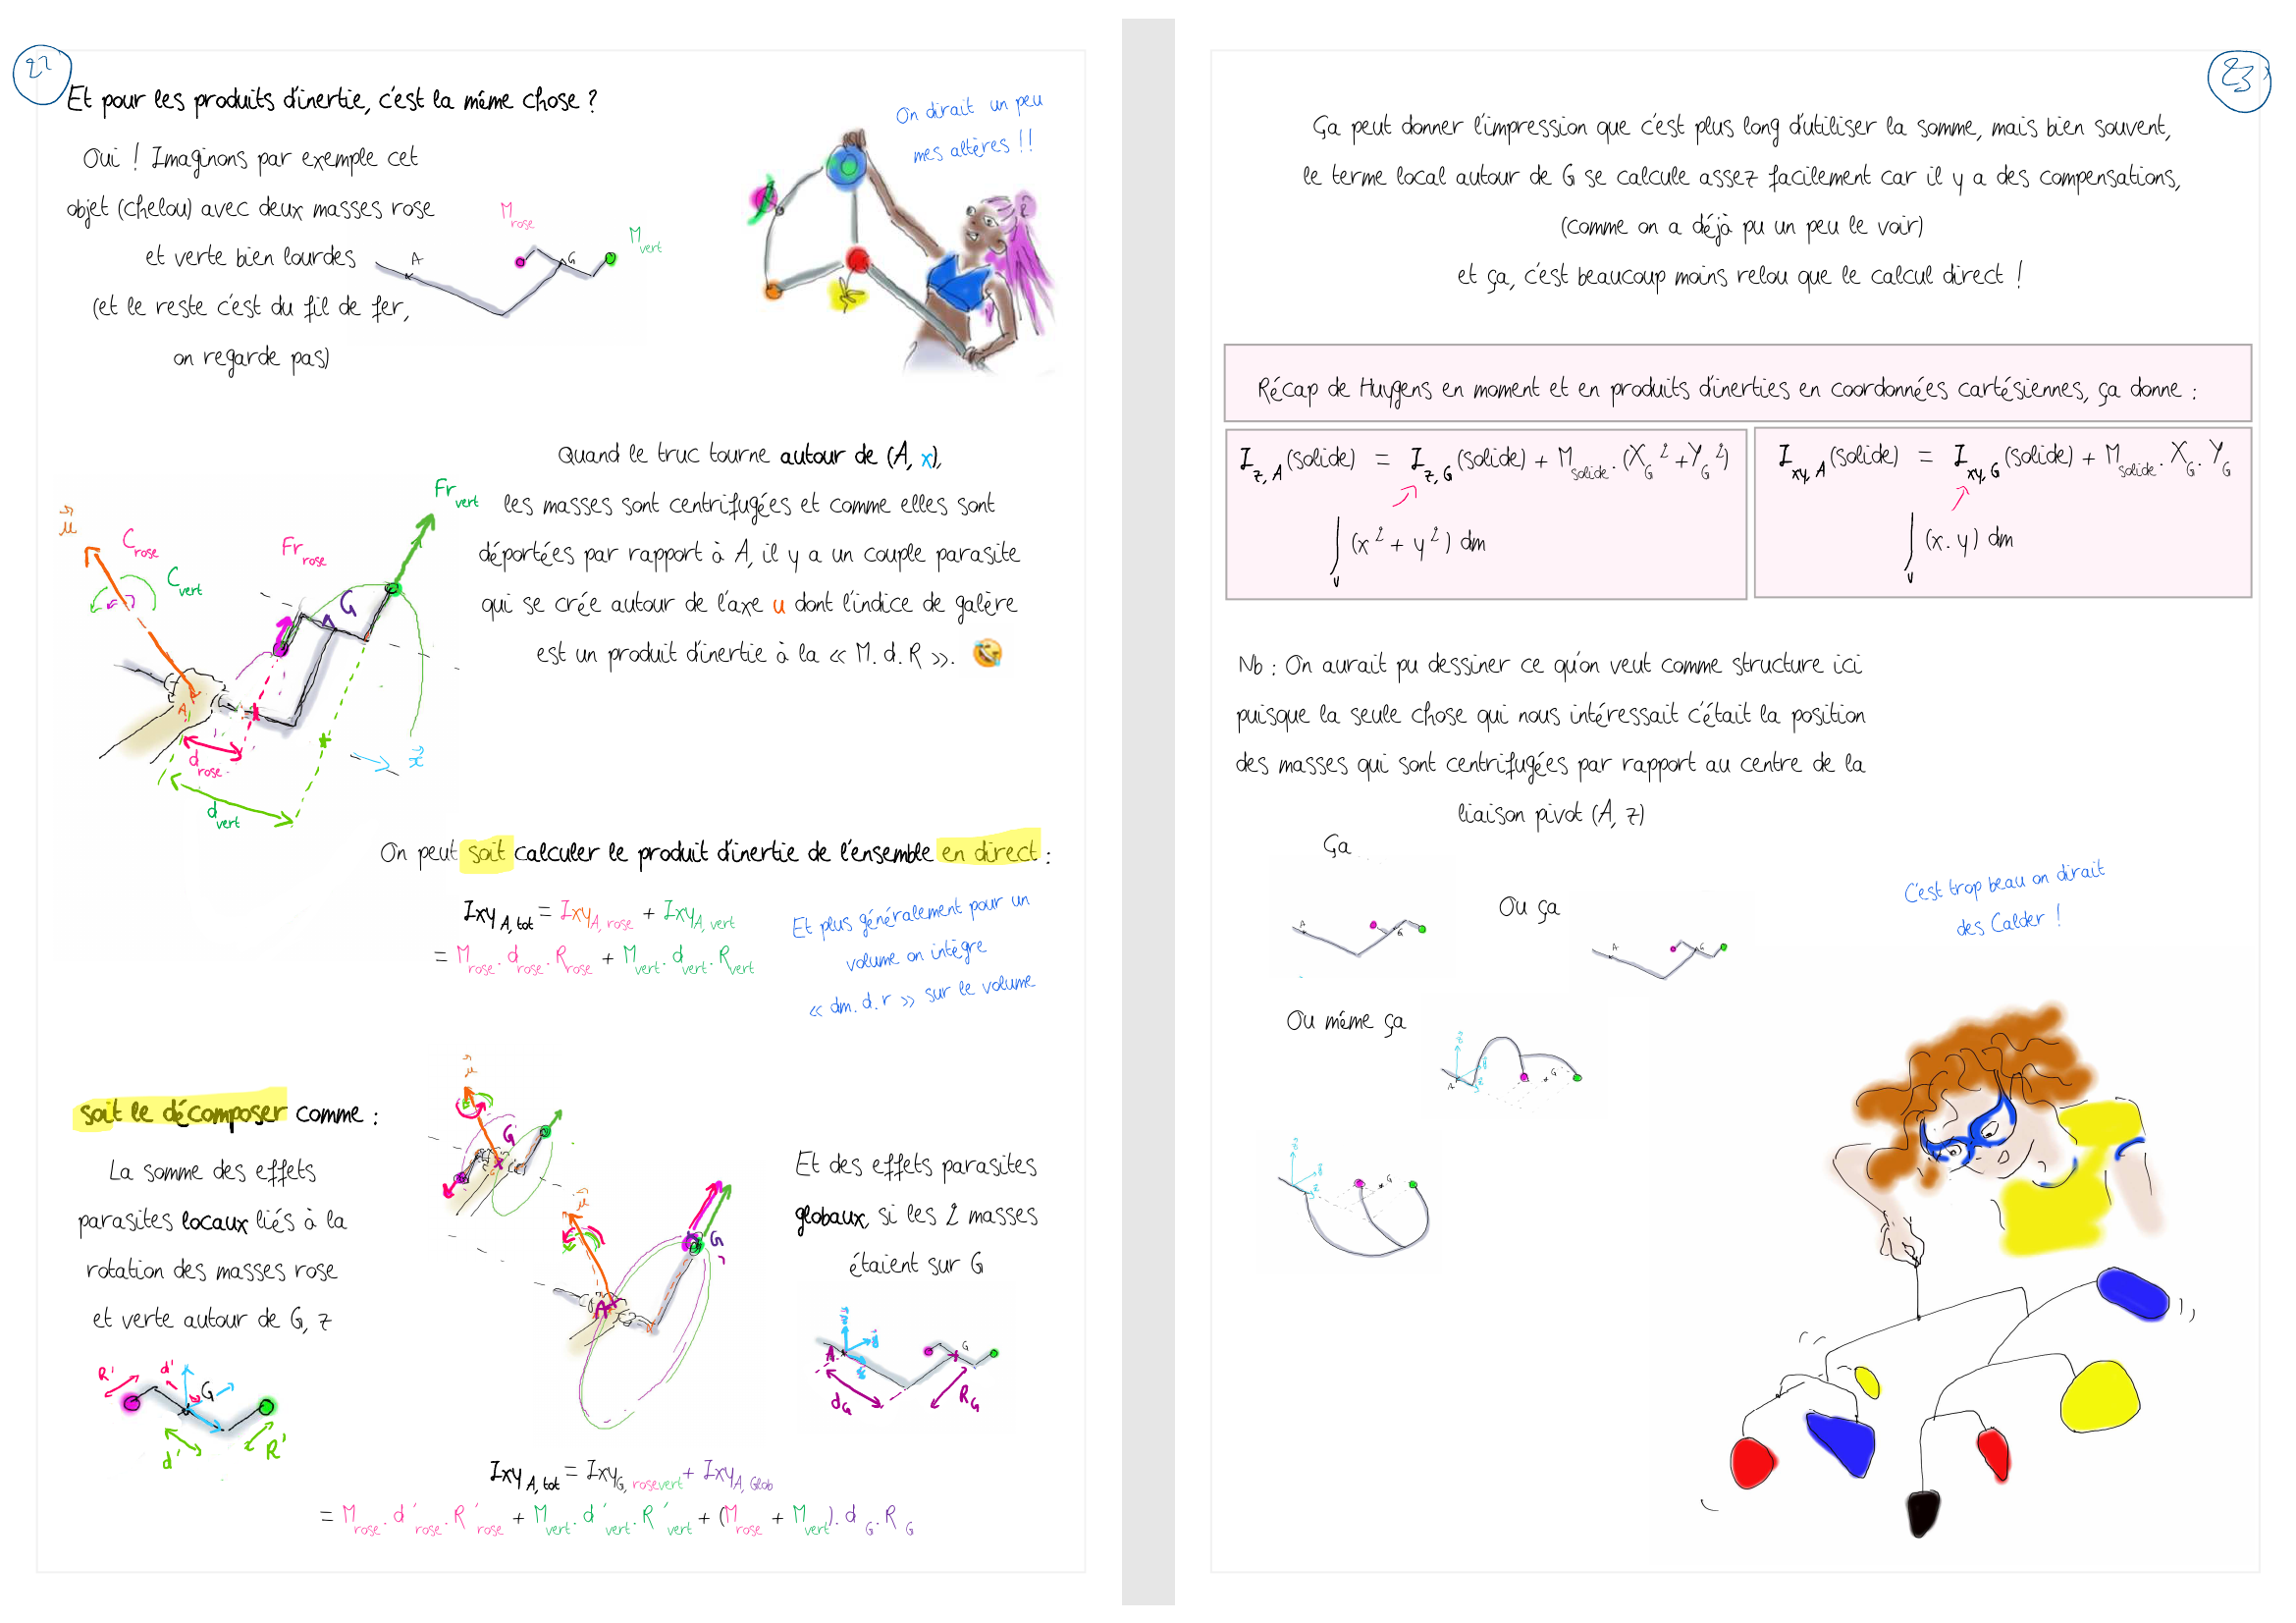 22
Et pour les produits d'inertie, c'est la même chose ?
Oui ! Imaginons par exemple cet
objet (chelou) avec deux masses rose
et verte bien lourdes
(et le reste c'est du fil de fer,
on regarde pas)
A
M rose
G
M vert
On dirait un peu
mes altères !!
Quand le truc tourne autour de (A, x),
les masses sont centrifugées et comme elles sont
déportées par rapport à A, il y a un couple parasite
qui se crée autour de l'axe u dont l'indice de galère
est un produit d'inertie à la « M. d. R ». 🤣
u
C rose
C vert
Fr rose
Fr vert
G
A
d rose
x
d vert
On peut soit calculer le produit d'inertie de l'ensemble en direct :
Ixy A, tot = Ixy A, rose + Ixy A, vert
= M rose . d rose . R rose + M vert . d vert . R vert
Et plus généralement pour un
volume on intègre
« dm. d. r » sur le volume
soit le décomposer comme :
La somme des effets
parasites locaux liés à la
rotation des masses rose
et verte autour de G, z
R' d' G
d' R'
u
G
u
G
A
Et des effets parasites
globaux, si les 2 masses
étaient sur G
A
G
d G
R G
Ixy A, tot = Ixy G, rosevert + Ixy A, Glob
= M rose . d ' rose . R ' rose + M vert . d ' vert . R ' vert + (M rose + M vert). d G . R G
23
Ça peut donner l'impression que c'est plus long d'utiliser la somme, mais bien souvent,
le terme local autour de G se calcule assez facilement car il y a des compensations,
(comme on a déjà pu un peu le voir)
et ça, c'est beaucoup moins relou que le calcul direct !
Récap de Huygens en moment et en produits d'inerties en coordonnées cartésiennes, ça donne :
I z, A (solide) = I z, G (solide) + M solide . (X G ² + Y G ²)
∫ v (x ² + y ²) dm
I xy, A (solide) = I xy, G (solide) + M solide . X G . Y G
∫ v (x. y) dm
Nb : On aurait pu dessiner ce qu'on veut comme structure ici
puisque la seule chose qui nous intéressait c'était la position
des masses qui sont centrifugées par rapport au centre de la
liaison pivot (A, z)
Ça
A
G
Ou ça
A
G
Ou même ça
A
G
G
C'est trop beau on dirait
des Calder !